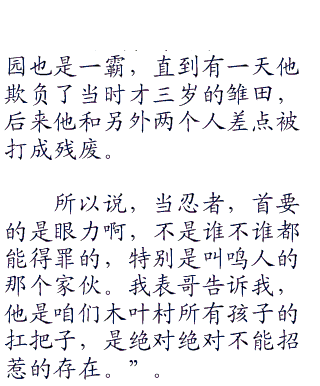 园也是一霸，直到有一天他
欺负了当时才三岁的雏田，
后来他和另外两个人差点被
打成残废。
所以说，当忍者，首要
的是眼力啊，不是谁不谁都
能得罪的，特别是叫鸣人的
那个家伙。我表哥告诉我，
他是咱们木叶村所有孩子的
扛把子，是绝对绝对不能招
惹的存在。”。